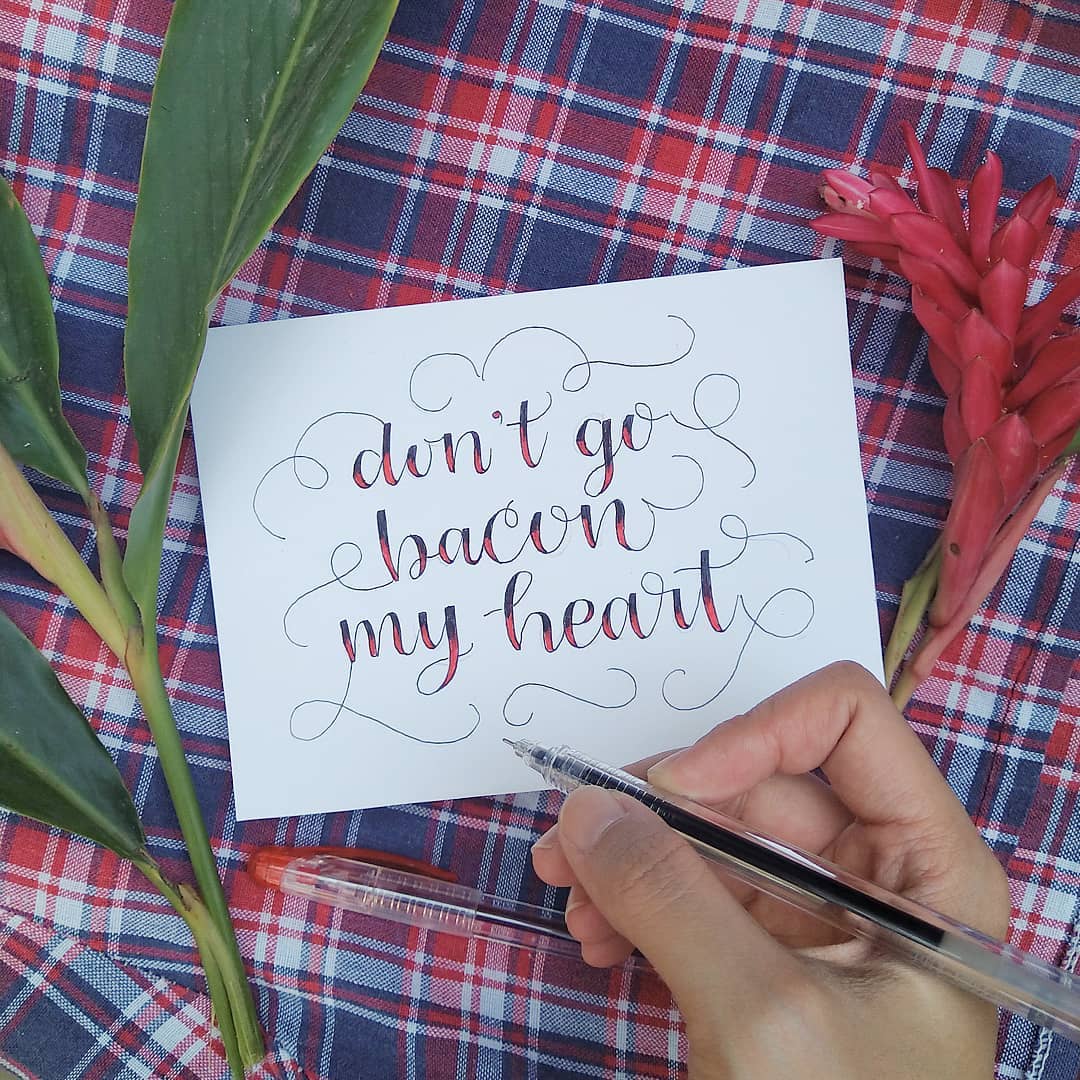 don't go
bacon
my heart